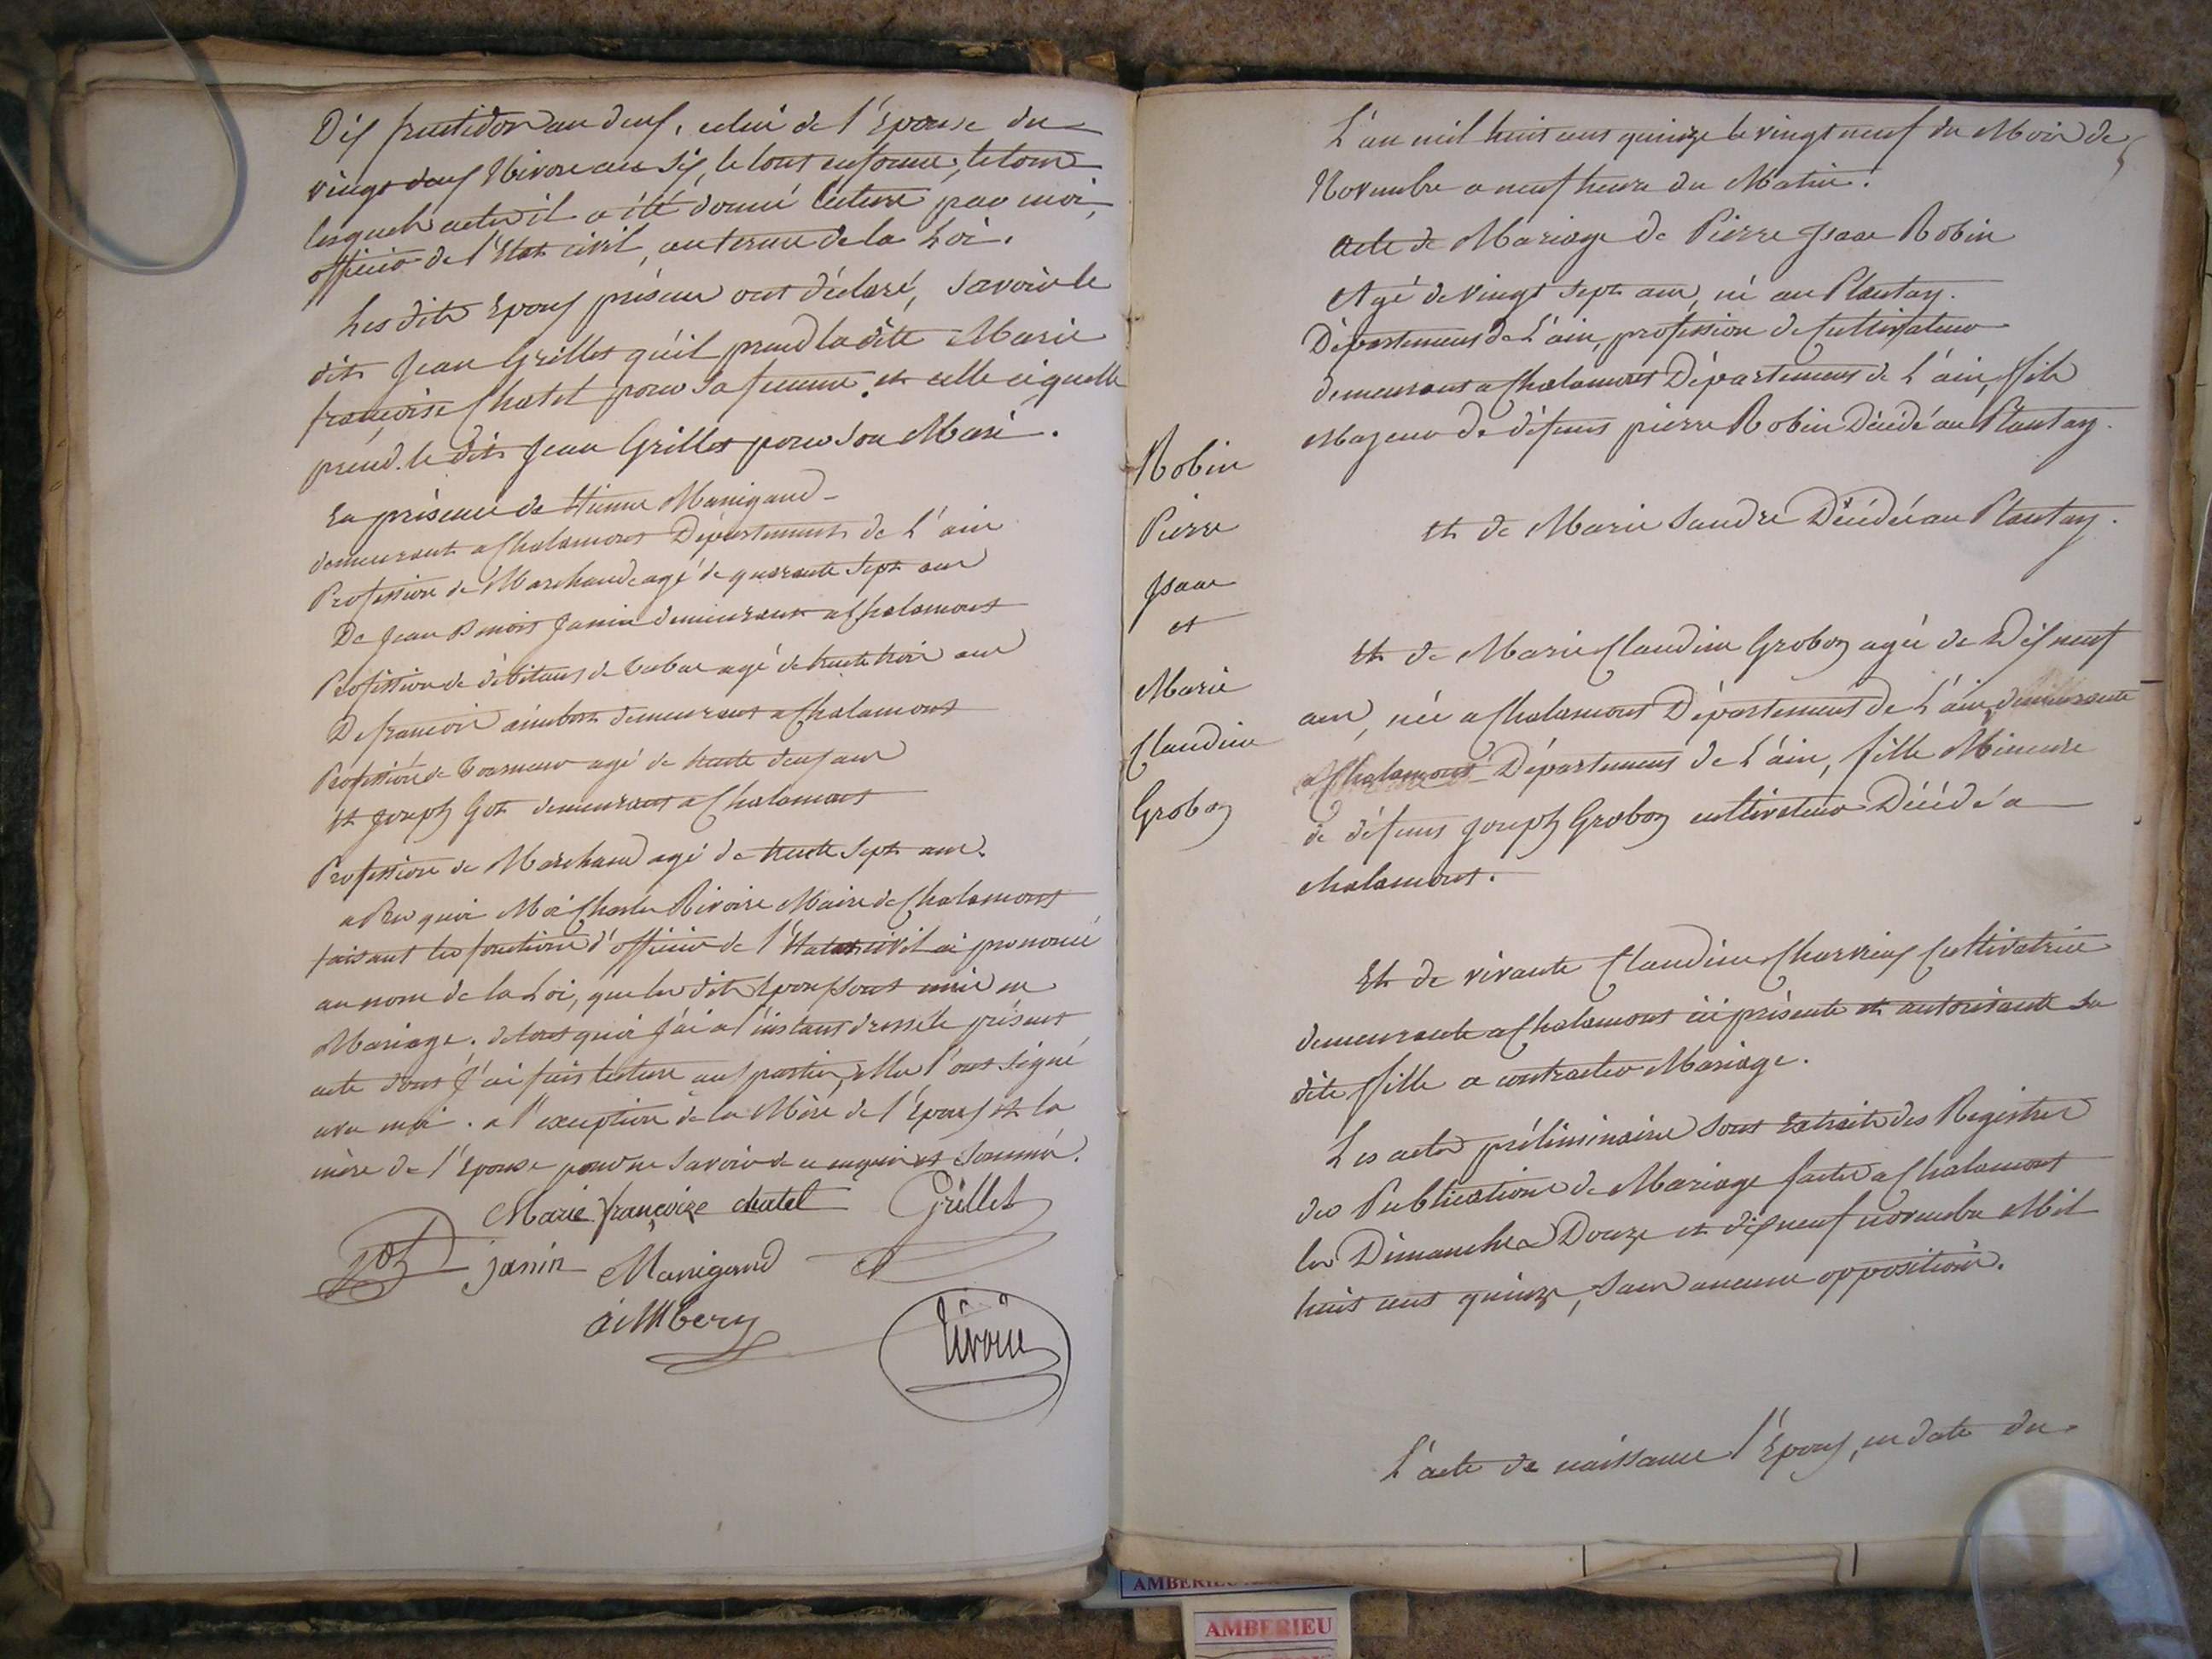 Dix fructidor an deux, celui de l'Epouse du
vingt deux Nivose an six, le tout en forme, de tous
lesquels actes il a été donné lecture par moi,
officier de l'Etat civil, au terme de la Loi.
Les dits Epoux présens ont déclaré, savoir le
dit Jean Grillet qu'il prend la ditte Marie
françoise Chatel pour sa femme. et celle ci quelle
prend le dit Jean Grillet pour son Mari.
En présence de Etienne Manigand
demeurant a Chalamont Département de L'ain
Profession de Marchand agé de quarante sept ans
De Jean Benoit Janin demeurant a Chalamont
Profession de débitant de Tabac agé de trente trois ans
De françois aimbert demeurant a Chalamont
Profession de Tourneur agé de trente deux ans
et Joseph Got demeurant a Chalamont
Profession de Marchand agé de trente sept ans.
aPrès quoi Moi Charles Rivoire Maire de Chalamont
faisant les fonctions d'officier de l'Etat civil ai prononcé
au nom de la Loi, que les dits Epoux sont unis en
Mariage. de tout quoi j'ai a l'instant dressé le présent
acte dont j'ai fait lecture aux parties, elles l'ont signé
avec moi. a l'exception de la Mère de l'Epoux et la
mère de l'Epouse pour ne savoir de ce enquis et sommé.
Marie françoise chatel Grillet
got janin Manigand
aimbery
Rivoire
L'an mil huit cent quinze le vingt neuf du Mois de
Novembre a neuf heure du Matin.
acte de Mariage de Pierre Isaac Robin
Agé de vingt sept ans, né au Plantay.
Département de L'ain, profession de Cultivateur
demeurant a Chalamont Département de L'ain, fils
Majeur de défunt pierre Robin Décédé au Plantay.
et de Marie Sandre Décédée au Plantay.
Robin
Pierre
Isaac
et
Marie
Claudine
Groboz
Et de Marie Claudine Groboz agée de Dix neuf
ans, née a Chalamont Département de L'ain, demeurante
a Chalamont Département de L'ain, fille Mineure
de défunt joseph Groboz cultivateur Décédé a
chalamont.
Et de vivante Claudine Charvieux Cultivatrice
demeurante a Chalamont ici présente et autorisante sa
dite fille a contracter Mariage.
Les actes préliminaire sont Extraits des Registres
des Publications de Mariage faites a Chalamont
les Dimanches Douze et dix neuf novembre Mil
huit cent quinze, sans aucune opposition.
L'acte de naissance l'Epoux, en date du
AMBERIEU
AMBERIEU